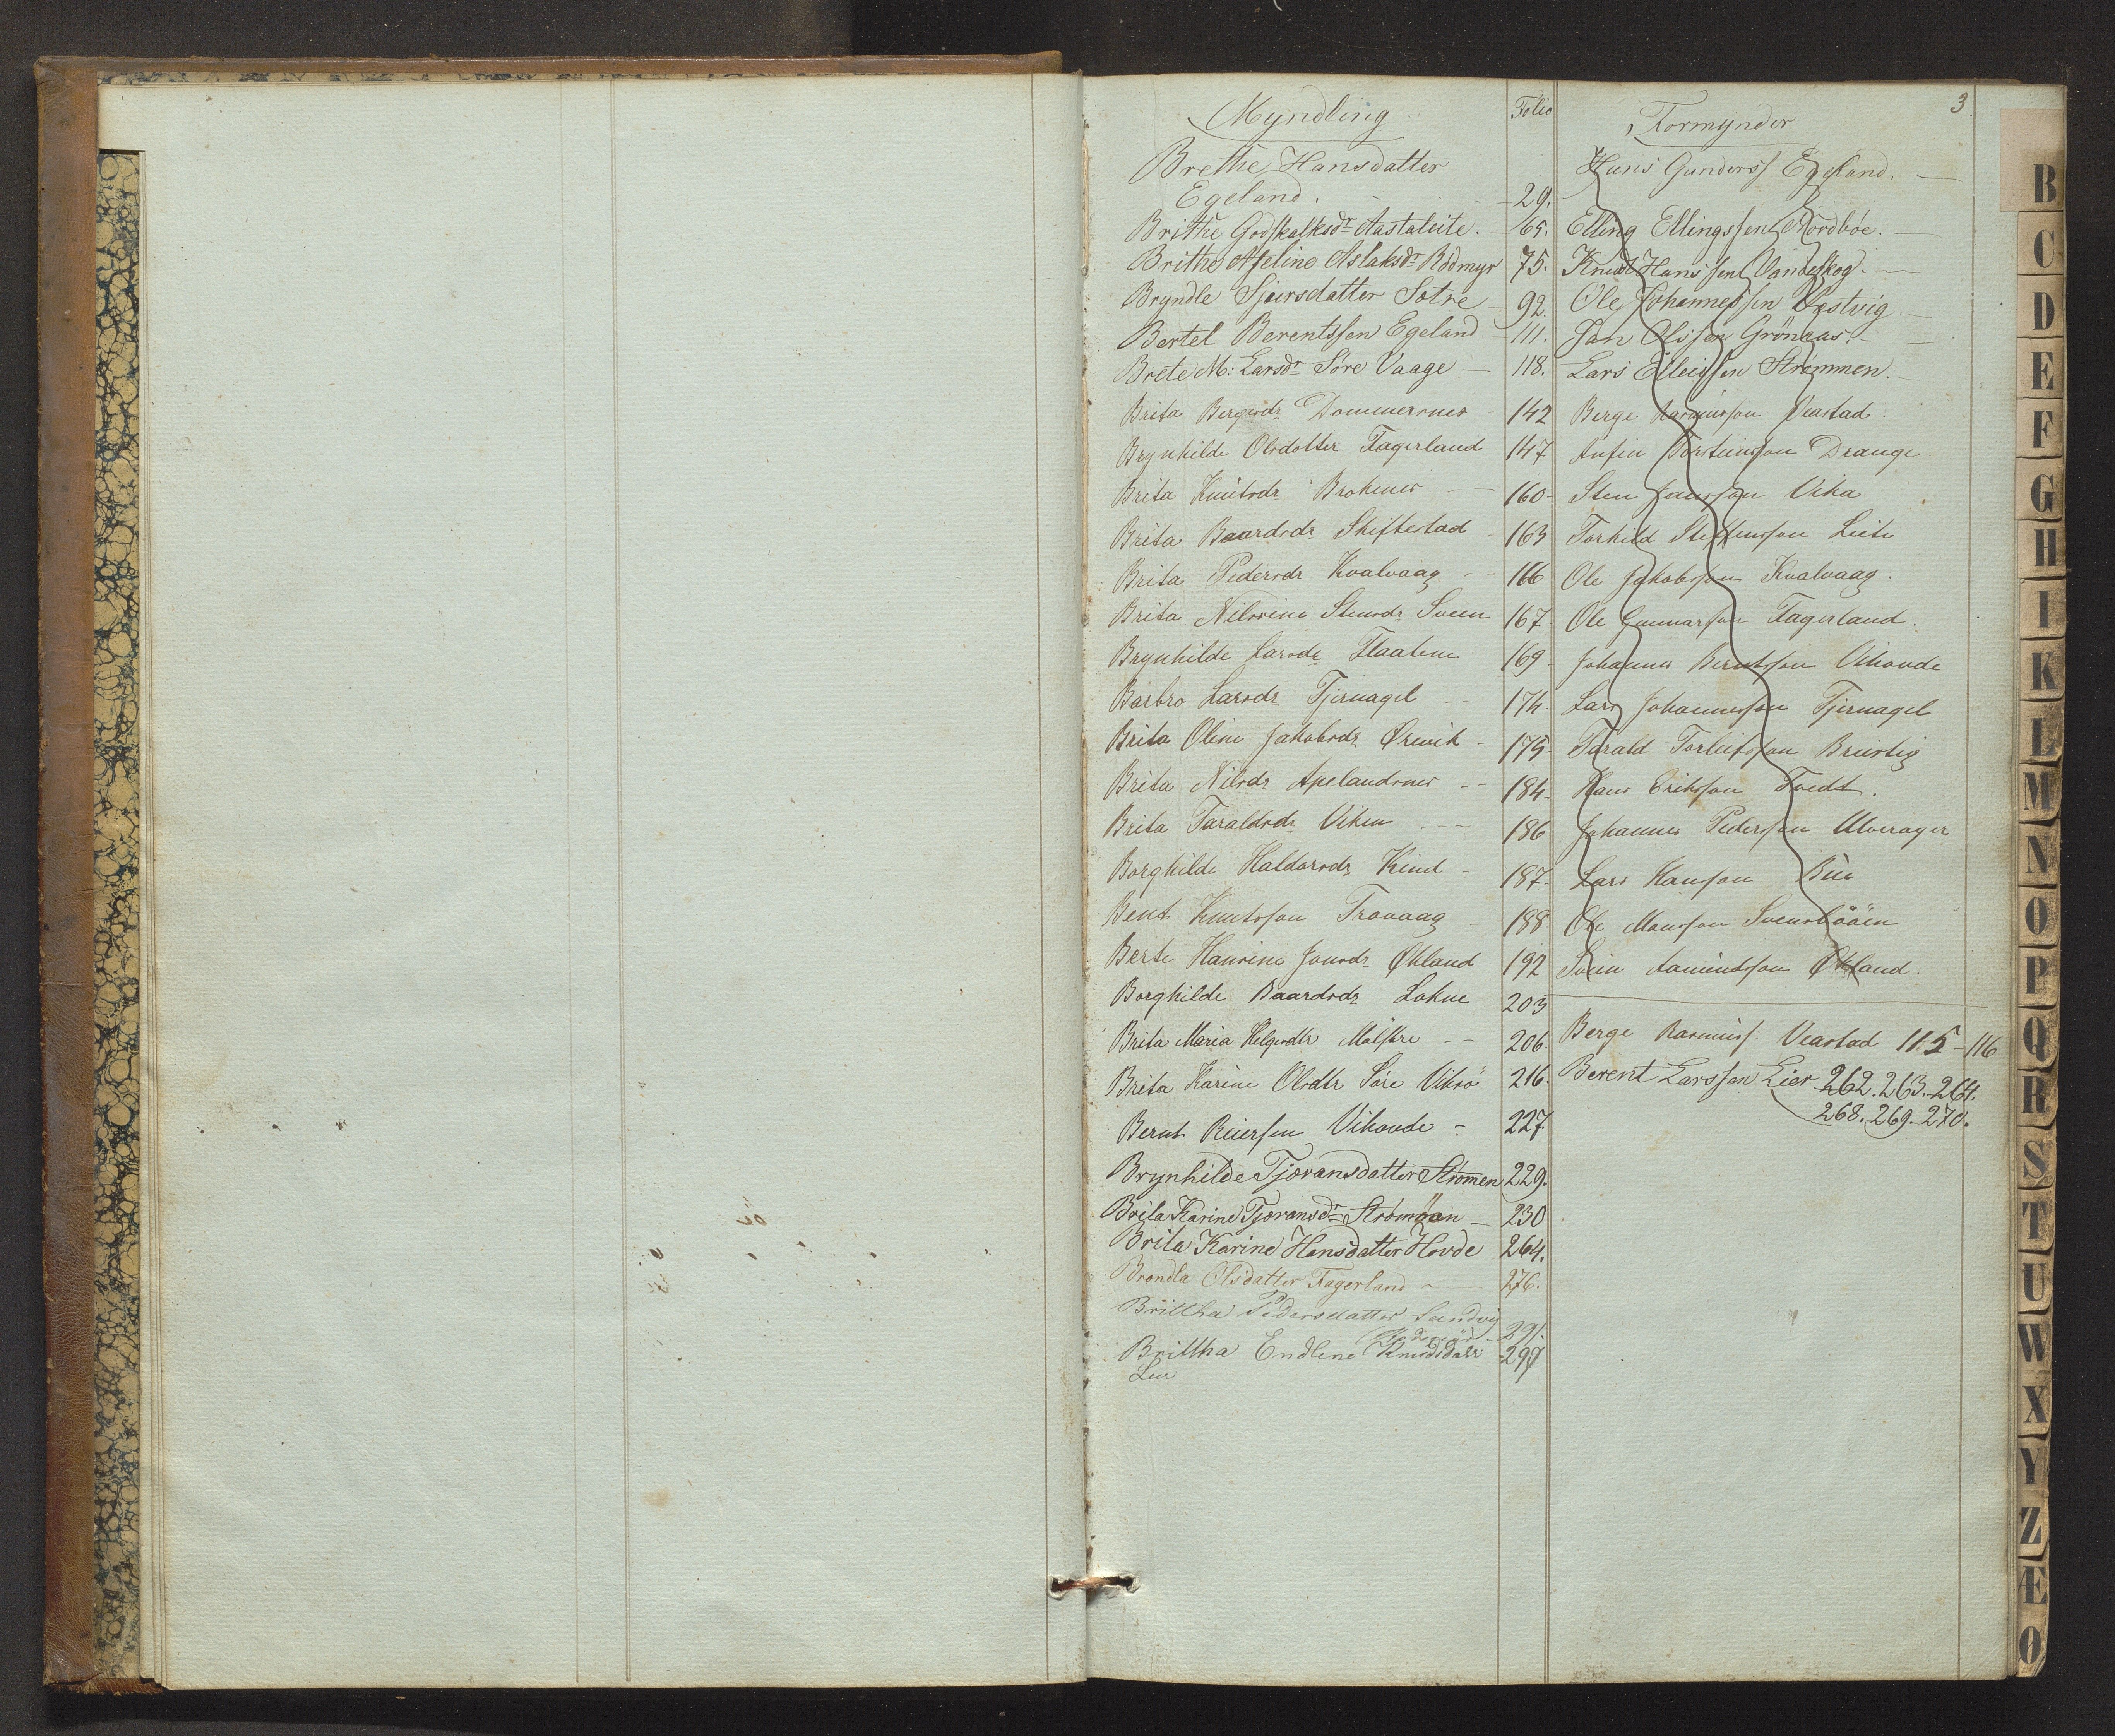 3
Myndling Folio Formynder
Brethe Hansdatter Hans Gunderss Egeland.
Egeland. 29.
Brithe Godskalksdr Aastaleite. 65. Elling Ellingssen Nordbøe.
Brithe Aseline Aslaksdr Rødmyr 75. Knud Hanssen Vandeskog.
Bryndle Sjursdatter Sotre 92. Ole Johannessen Vestvig
Bertel Berentssen Egeland 111. Jan Olssen Grönaas.
Brete M: Larsdr Söre Vaage 118. Lars Elleissen Strømmen.
Brita Bergesdr Dommersnes 142 Berge Rasmusson Veastad
Brynhilde Olsdatter Fagerland 147 Anfin Torsteinson Drange
Brita Knutsdr Brokenes 160 Sten Jansson Vika
Brita Baardsdr Skiftestad 163 Torkild Steffensson Leite
Brita Pedersdr Kvalvaag 166 Ole Jakobsson Kvalvaag.
Brita Nilssine Stensdr Sveen 167 Ole Gunnarson Fagerland.
Brynhilde Larsdr Flaaten 169 Johannes Berntsson Vihovde
Barbro Larsdr Tjernagel 174. Lars Johannesson Tjernagel
Brita Oline Jakobsdr Ørevik 175 Tarald Torleifsson Breivig
Brita Nilsdr Apelandsnes 184 Hans Eriksson Tvedt.
Brita Taraldsdr Viken 186 Johannes Pederson Ulverager
Borghilde Haldorsdr Kind 187 Lars Hanson Büe
Bent Knutsson Trovaag 188 Ole Monsson Svensbøen
Berte Hansine Jonsdr Økland 192 Svein Aamundson Økland.
Borghilde Baardsdr Lokne 203
Brita Maria Helgesdtr Mælstre 206. Berge Rasmuss: Veastad 115-116
Brita Karine Olsdtr Søre Viksö 216. Berent Larssen Lier 262. 263. 264.
268. 269. 270.
Bernt Reiersen Vihovde 227
Brynhilde Tjøransdatter Strømen 229.
Brita Karine Tjøransdr Strømmen 230
Brita Karine Hansdatter Hovde 264.
Brondla Olsdatter Fagerland 276.
Brittha Pedersdatter Sandvig
291.
Brittha Endline Knudsdatr 297
B
C
D
E
F
G
H
I
K
L
M
N
O
P
Q
R
S
T
U
W
X
Y
Z
Æ
Ø